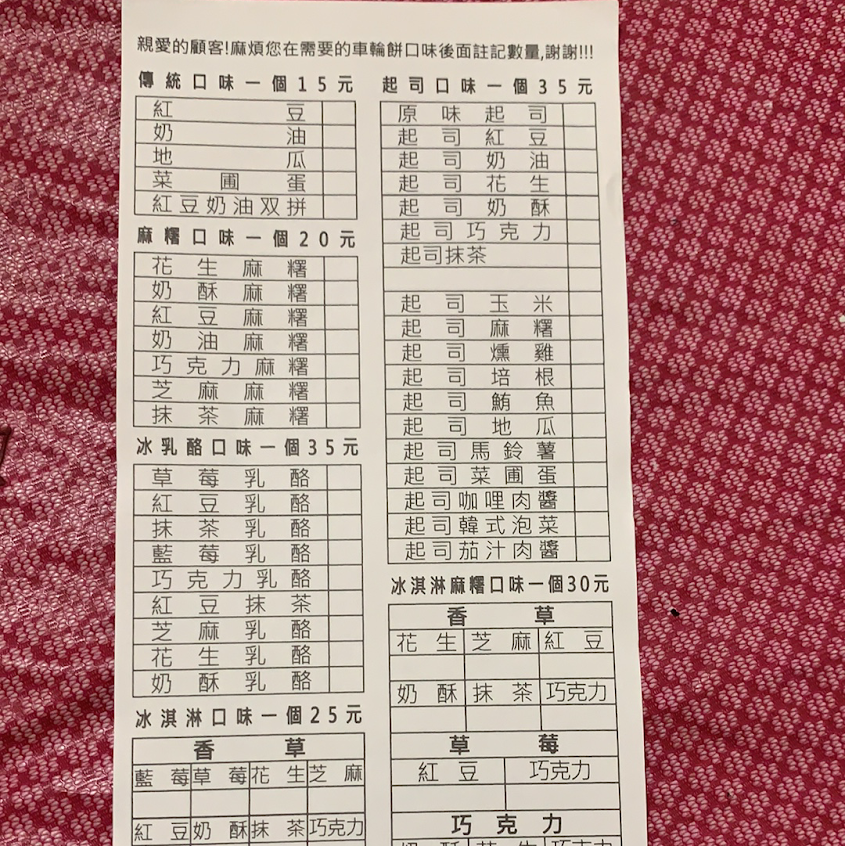 親愛的顧客!麻煩您在需要的車輪餅口味後面註記數量,謝謝!!!
傳統口味一個15元
紅豆
奶油
地瓜
菜圃蛋
紅豆奶油双拼
麻糬口味一個20元
花生麻糬
奶酥麻糬
紅豆麻糬
奶油麻糬
巧克力麻糬
芝麻麻糬
抹茶麻糬
冰乳酪口味一個35元
草莓乳酪
紅豆乳酪
抹茶乳酪
藍莓乳酪
巧克力乳酪
紅豆抹茶
芝麻乳酪
花生乳酪
奶酥乳酪
冰淇淋口味一個25元
香草
藍莓 草莓 花生 芝麻
紅豆 奶酥 抹茶 巧克力
起司口味一個35元
原味起司
起司紅豆
起司奶油
起司花生
起司奶酥
起司巧克力
起司抹茶
起司玉米
起司麻糬
起司燻雞
起司培根
起司鮪魚
起司地瓜
起司馬鈴薯
起司菜圃蛋
起司咖哩肉醬
起司韓式泡菜
起司茄汁肉醬
冰淇淋麻糬口味一個30元
香草
花生 芝麻 紅豆
奶酥 抹茶 巧克力
草莓
紅豆 巧克力
巧克力
奶酥 花生 巧克力